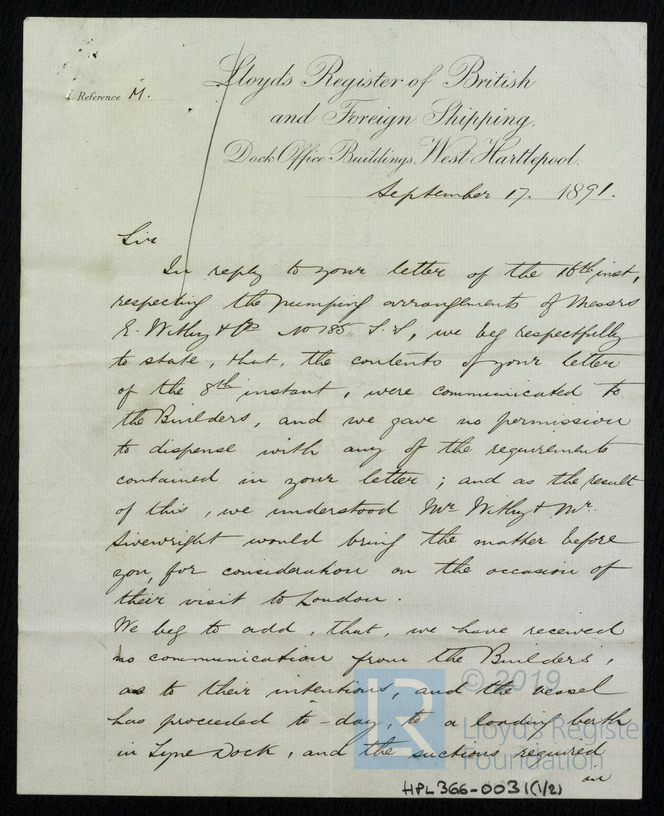 Lloyd's Register of British
and Foreign Shipping.
Reference M.
Dock Office Buildings, West Hartlepool.
September 17. 1891.
Sir
In reply to your letter of the 16th inst,
respecting the pumping arrangements of Messrs
E. Withy & Co No 185 S.S, we beg respectfully
to state, that, the contents of your letter
of the 8th instant, were communicated to
the Builders, and we gave no permission
to dispense with any of the requirements
contained in your letter; and as the result
of this, we understood Mr Withy & Mr.
Sivewright would bring the matter before
you, for consideration on the occasion of
their visit to London.
We beg to add, that, we have received
no communication from the Builders,
as to their intentions, and the vessel
has proceeded to-day, to a loading berth
in Tyne Dock, and the suctions required
© 2019
Lloyd's Register
Foundation
HPL366-0031(1/2)